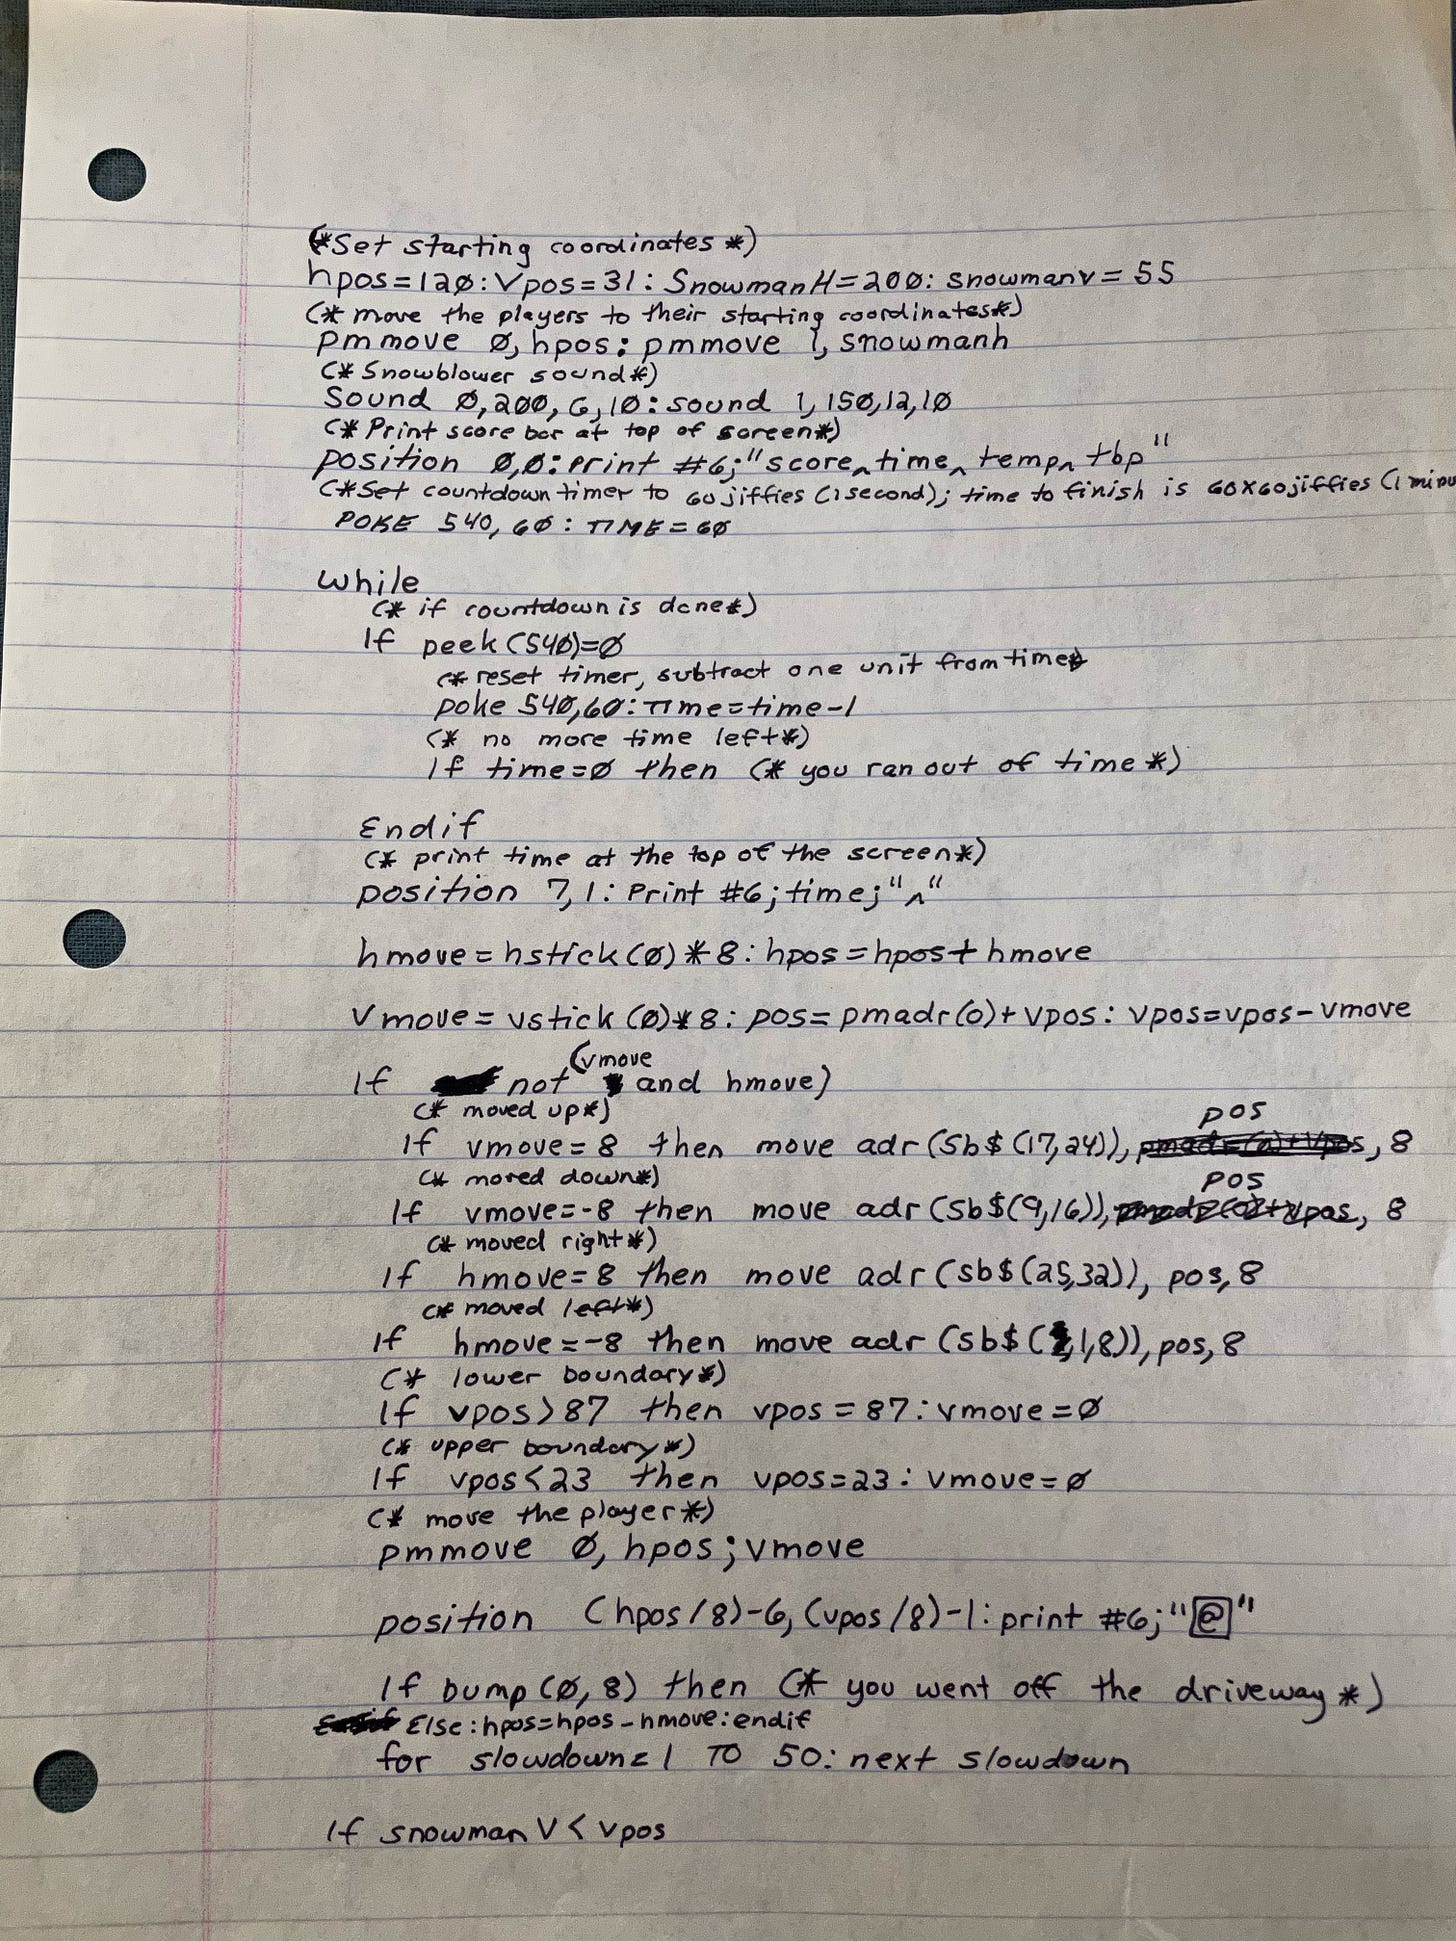 (*Set starting coordinates *)
hpos=120:Vpos=31:SnowmanH=200:snowmanv=55
(* move the players to their starting coordinates*)
pmmove 0,hpos:pmmove 1,snowmanh
(* Snowblower sound*)
Sound 0,200,6,10:sound 1,150,12,10
(* Print score bar at top of screen*)
position 0,0:print #6;"score^time^temp^tbp"
(*Set countdown timer to 60 jiffies (1 second); time to finish is 60x60 jiffies (1 minu
POKE 540,60:TIME=60
While
(* if countdown is done*)
If peek(540)=0
(* reset timer, subtract one unit from time*)
poke 540,60:Time=time-1
(* no more time left*)
If time=0 then (* you ran out of time*)
Endif
(* print time at the top of the screen*)
position 7,1:Print #6;time;"^"
hmove=hstick(0)*8:hpos=hpos+hmove
Vmove=vstick(0)*8:pos=pmadr(0)+vpos:vpos=vpos-vmove
If not (vmove and hmove)
(* moved up*)
If vmove=8 then move adr(Sb$(17,24)),pos,8
(* moved down*)
If vmove=-8 then move adr(Sb$(9,16)),pos,8
(* moved right*)
If hmove=8 then move adr(sb$(25,32)),pos,8
(* moved left*)
If hmove=-8 then move adr(sb$(1,8)),pos,8
(* lower boundary*)
If vpos>87 then vpos=87:vmove=0
(* upper boundary*)
If vpos<23 then vpos=23:vmove=0
(* move the player*)
pmmove 0,hpos;vmove
position (hpos/8)-6,(vpos/8)-1:print #6;"@"
If bump(0,8) then (* you went off the driveway*)
Else:hpos=hpos-hmove:endif
for slowdown=1 TO 50:next slowdown
If snowmanV<vpos